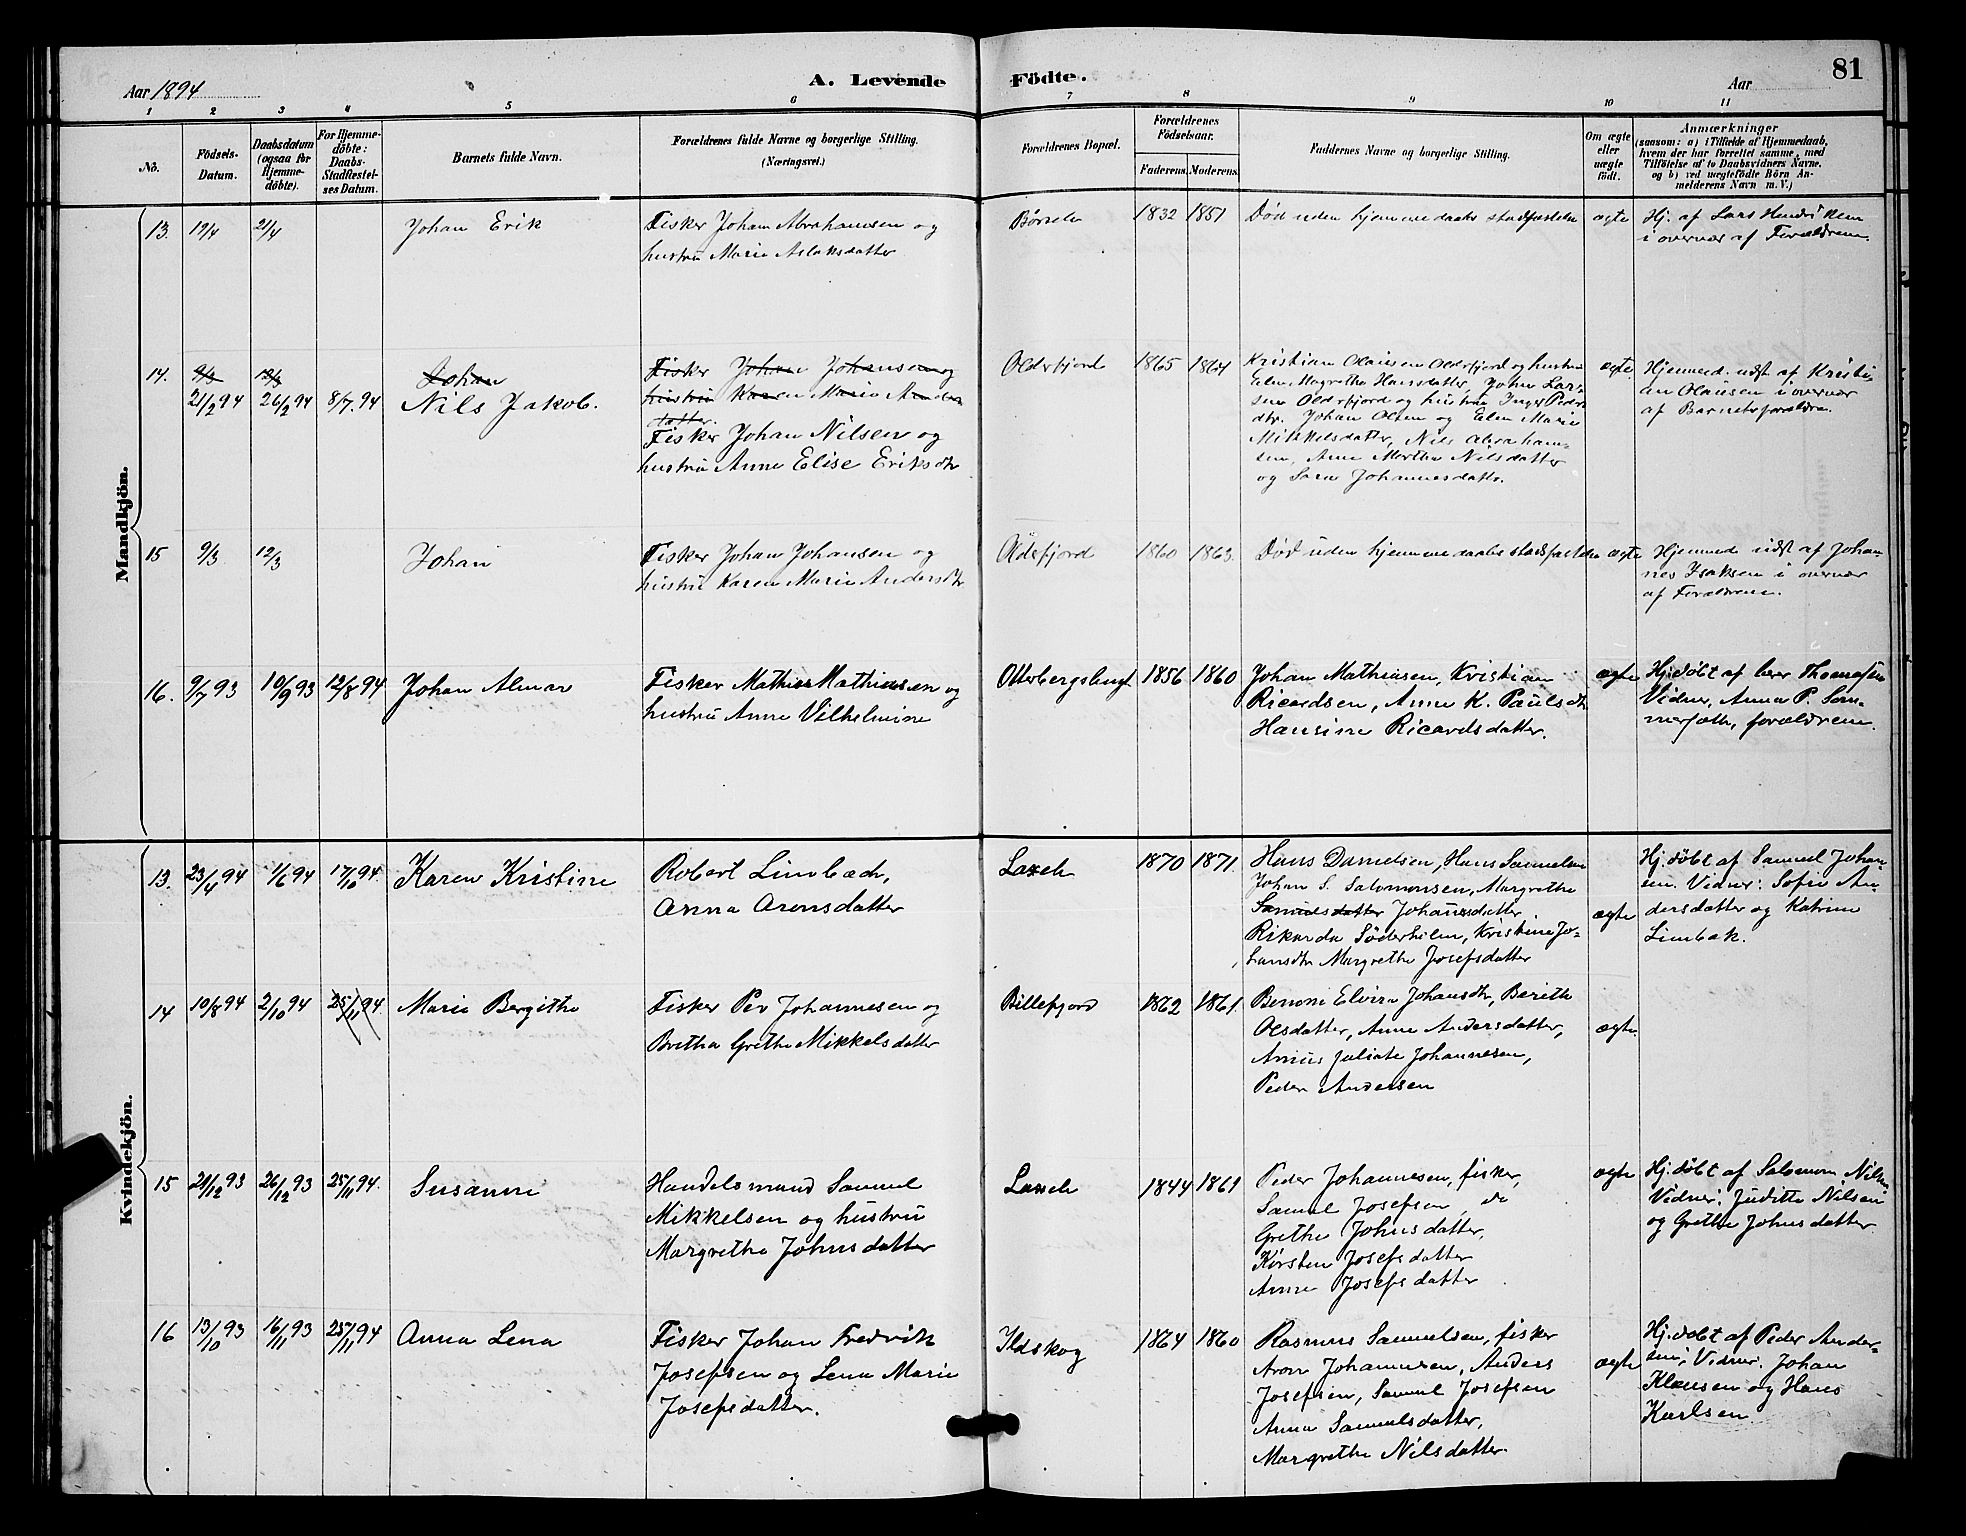 Aar 1894
A. Levende Födte.
Aar
81
1 2 3 4 5 6 7 8 9 10 11
No.
Födsels-
Datum.
Daabsdatum
(ogsaa for
Hjemme-
döbte).
For Hjemme-
döbte:
Daabs-
Stadfæstel-
ses Datum.
Barnets fulde Navn.
Forældrenes fulde Navne og borgerlige Stilling.
(Næringsvei.)
Forældrenes Bopæl.
Forældrenes
Födselsaar.
Faderens. Moderens.
Faddernes Navne og borgerlige Stilling.
Om ægte
eller
uægte
født.
Anmærkninger
(saasom: a) i Tilfælde af Hjemmedaab,
hvem der har forrettet samme, med
Tilföielse af to Daabsvidners Navne,
og b) ved uægtefödte Börn An-
melderens Navn m. V.)
Mandkjön.
13. 19/4 21/4
Johan Erik
Fisker Johan Abrahamsen og
hustru Marie Aslaksdatter
Børselv
1832 1851
Død uden hjemmedaabs stadfæstelse
ægte
Hj. af Lars Henriksen
i overvær af Forældrene.
14. 9/3 12/3
21/2 94 26/2 94 8/7 94
Johan
Nils Jakob.
Fisker Johan Johansen og
hustru Karen Marie Anders
datter.
Fisker Johan Nilsen og
hustru Anne Elise Eriksdtr
Olderfjord
1865 1864
Kristian Olausen Olderfjord og hustru
Elen Magrethe Hansdatter, John Lar-
sen Olderfjord og hustru Inger Peders
dtr. Johan Olsen og Elen Marie
Mikkelsdatter, Nils Abraham-
sen, Ane Marthe Nilsdatter
og Sara Johannesdatter.
ægte
Hjemmed. udst af Kristi-
an Olausen i overvær
af Barnets forældre.
15 9/3 12/3
Johan
Fisker Johan Johansen og
hustru Karen Marie Andersdtr
Oldefjord
1860 1863.
Død uden hjemmedaabs stadfæstelse
ægte
Hjemmed udst af Johan
nes Isaksen i overvær
af Forældrene.
16. 9/7 93 10/9 93 12/8 94
Johan Almar
Fisker Mathis Mathiesen og
hustru Anne Vilhelmine
Otterbergsbugt
1856 1860
Johan Mathiesen, Kristian
Ricardsen, Anne K. Paulsdtr
Hansine Ricardsdatter.
ægte
Hj.døbt af lærer Thomasen
Vidner, Anna P. Som-
merfeth, forældrene.
Kvindekjön.
13. 23/4 94 1/6 94 17/10 94
Karen Kristine
Robert Limbach,
Anna Aronsdatter
Laxelv
1870 1871.
Hans Danielsen, Hans Samuelsen
Johan S. Salomonsen, Margrethe
Samuelsdatter Johansdatter,
Rikarda Söderholm, Kristine Jo-
hansdtr Margrethe Josefsdatter
ægte
Hj.døbt af Samuel Johan-
sen. Vidner: Sofie An-
dersdatter og Katrine
Limbak.
14 10/8 94 2/10 94 25/11 94
Marie Bergithe
Fisker Per Johannesen og
Bretha Grethe Mikkelsdatter
Billefjord
1862 1861.
Benone Elvira Johansdtr, Berith
Olsdatter, Anne Andersdatter,
Juliate Johannesen,
Peder Andersen
ægte.
15 21/12 93 26/12 93 25/11 94.
Susanne
Handelsmand Samuel
Mikkelsen og hustru
Margrethe Johnsdatter
Laxelv
1844 1861
Peder Johannesen, fisker,
Samuel Josefsen, do
Grethe Johnsdatter,
Kirsten Josefsdatter
Anne Josefsdatter
ægte
Hj.døbt af Salomon Nilsen
Vidner: Juditte Nilsen
og Grethe Johnsdatter
16 13/10 93 16/11 93 25/11 94
Anna Lena
Fisker Johan Fredrik
Josefsen og Lena Marie
Josefsdatter.
Ildskog
1864 1860
Rasmus Samuelsen, fisker
Aron Johannesen, Anders
Josefsen, Samuel Josefsen
Anna Samuelsdatter,
Margrethe Nilsdatter.
ægte
Hj.døbt af Peder Ander-
sen, Vidner: Johan
Klausen og Hans
Karlsen